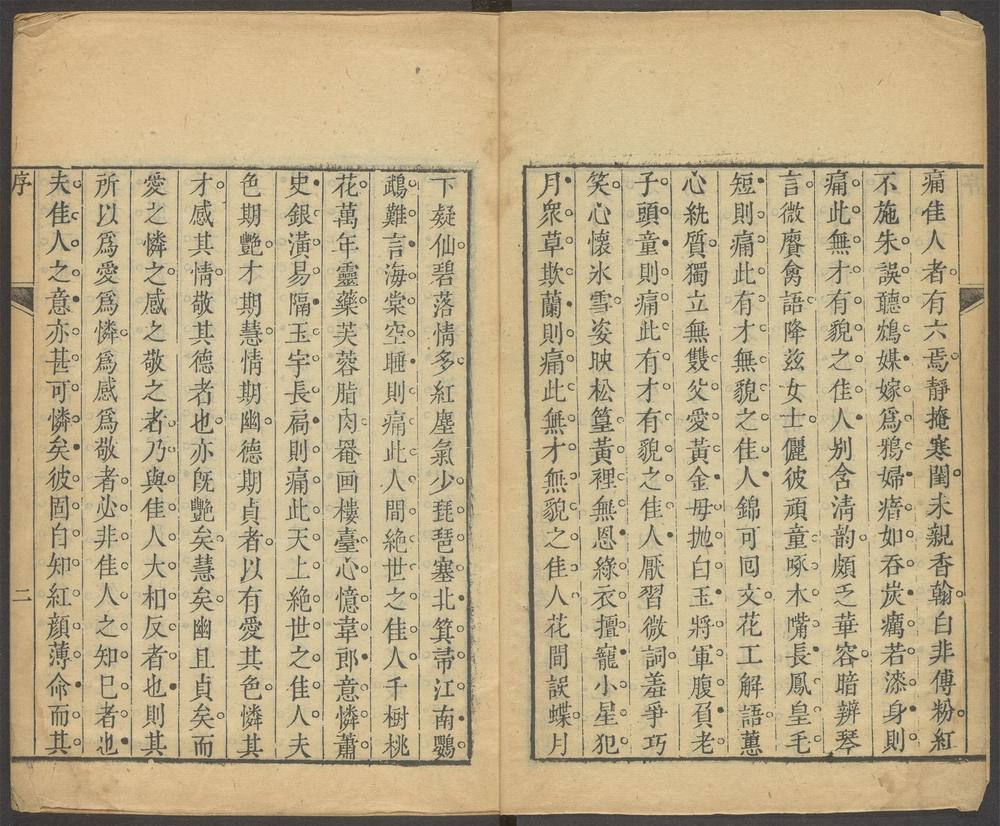 痛佳人者有六焉靜掩寒閨未親香翰白非傅粉紅
不施朱誤聽鴆媒嫁爲鴉婦瘖如吞炭癘若漆身則
痛此無才有貌之佳人别含清韵頗乏華容暗辨琴
言微賡禽語降兹女士儷彼頑童啄木嘴長鳳皇毛
短則痛此有才無貌之佳人錦可囘文花工解語蕙
心紈質獨立無雙父愛黃金母抛白玉將軍腹負老
子頭童則痛此有才有貌之佳人厭習微詞羞爭巧
笑心懷氷雪姿映松篁黃裡無恩綠衣擅寵小星犯
月衆草欺蘭則痛此無才無貌之佳人花間誤蝶月
下疑仙碧落情多紅塵氣少琵琶塞北箕帚江南鸚
鵡難言海棠空睡則痛此人間絶世之佳人千樹桃
花萬年靈藥芙蓉脂肉罨画樓臺心憶韋郎意憐蕭
史銀潢易隔玉宇長扄則痛此天上絶世之佳人夫
色期艷才期慧情期幽德期貞者以有愛其色憐其
才感其情敬其德者也亦旣艷矣慧矣幽且貞矣而
愛之憐之感之敬之者乃與佳人大相反者也則其
所以爲愛爲憐爲感爲敬者必非佳人之知巳者也
夫佳人之意亦甚可憐矣彼固自知紅顔薄命而其
序 二